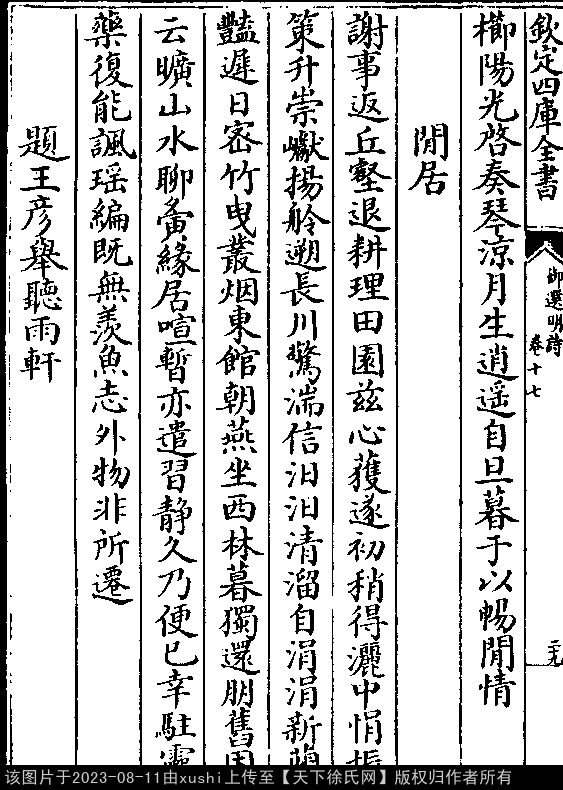 欽定四庫全書
御選明詩
卷十七
二十九
櫛陽光啓奏琴涼月生逍遥自旦暮于以暢閒情
閒居
謝事返丘壑退耕理田園兹心蓡遂初稍得灑中悁振
策升崇巘揚舲遡長川驚湍信汨汨清溜自涓涓新蘭
豔遲日密竹曳叢烟東館朝燕坐西林暮獨還朋舊固
云曠山水聊夤緣居喧暫亦遣習静久乃便已幸駐靈
藥復能諷瑶編既無羡魚志外物非所遷
題王彦舉聽雨軒
该图片于2023-08-11由xushi上传至【天下徐氏网】版权归作者所有